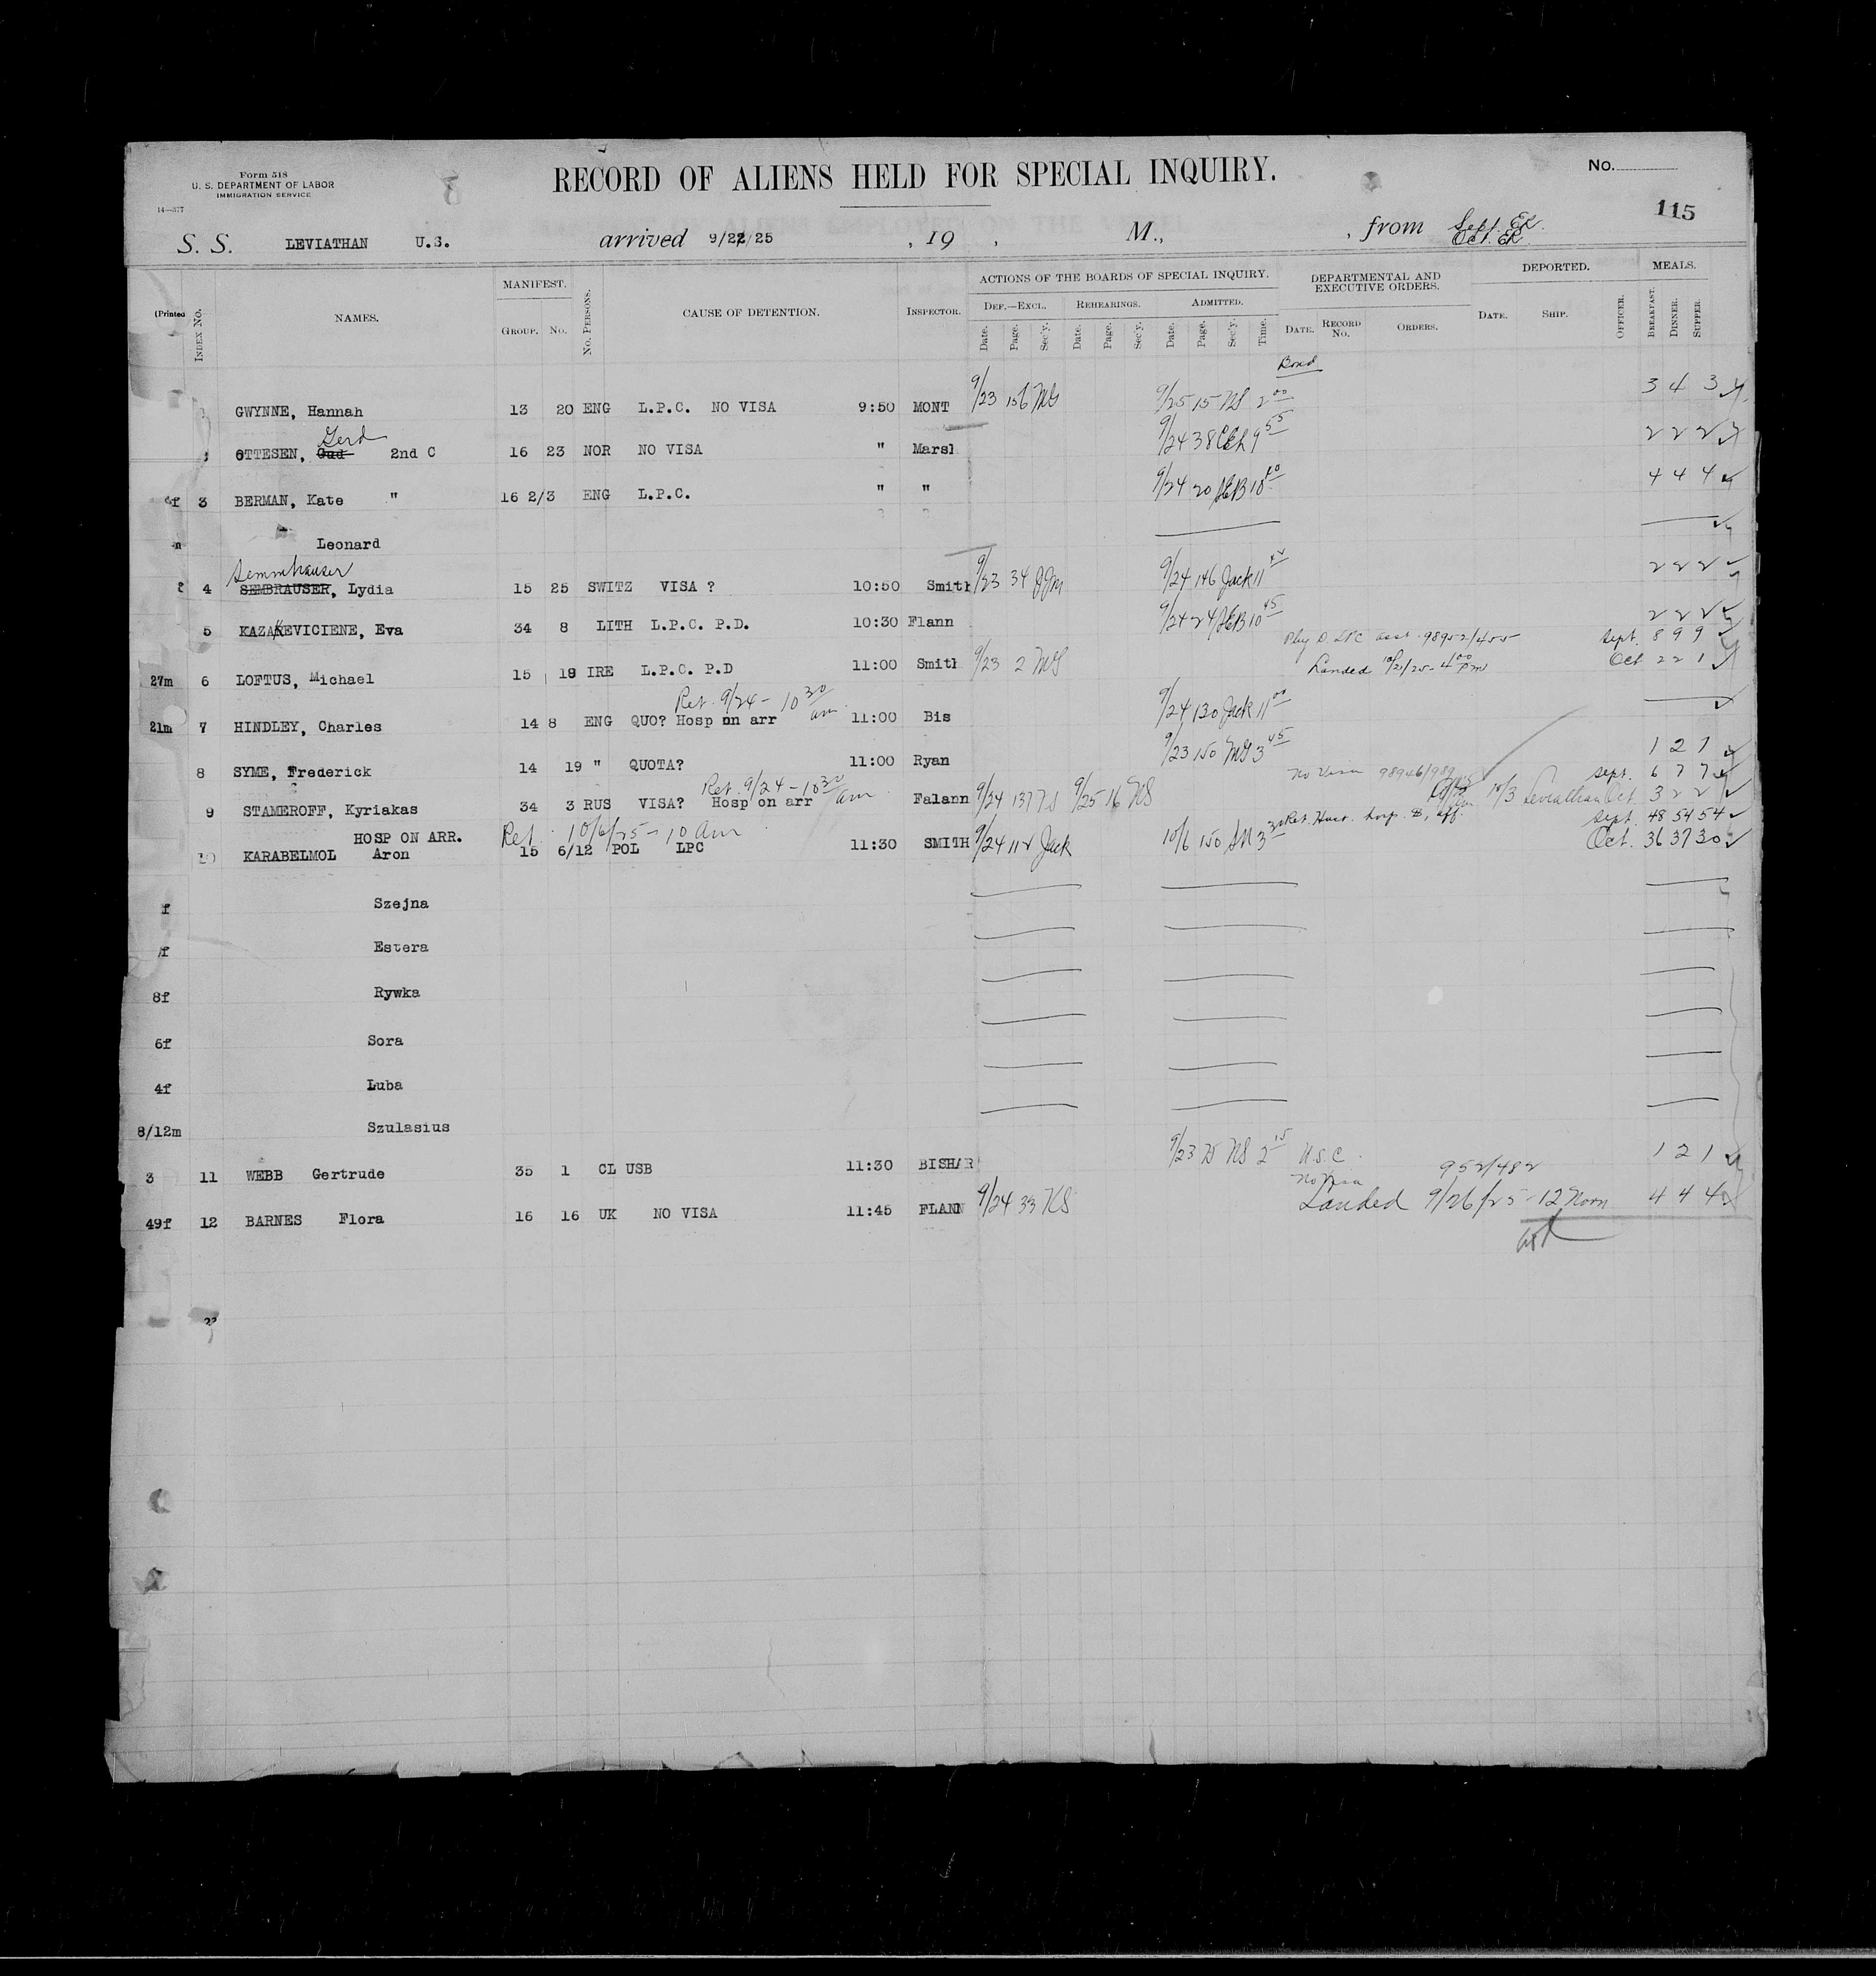 Form 518
U. S. DEPARTMENT OF LABOR
IMMIGRATION SERVICE
14—377
RECORD OF ALIENS HELD FOR SPECIAL INQUIRY.
No.
115
S. S. LEVIATHAN U.S. arrived 9/22/25 , 19 , M., , from Sept. Ex.
Oct. Ex.
(Printed
INDEX NO.
NAMES.
MANIFEST.
GROUP. NO.
NO. PERSONS.
CAUSE OF DETENTION.
INSPECTOR.
ACTIONS OF THE BOARDS OF SPECIAL INQUIRY.
DEF.—EXCL. REHEARINGS. ADMITTED.
Date. Page. Sec'y. Date. Page. Sec'y. Date. Page. Sec'y. Time.
DEPARTMENTAL AND EXECUTIVE ORDERS.
DATE. RECORD NO. ORDERS.
DEPORTED.
DATE. SHIP. OFFICER.
MEALS.
BREAKFAST. DINNER. SUPPER.
Bond
GWYNNE, Hannah 13 20 ENG L.P.C. NO VISA 9:50 MONT 9/23 156 MG 9/25 15 NS 2 00 3 4 3
Gerd
OTTESEN, Gud 2nd C 16 23 NOR NO VISA " Marsl 9/24 38 9 55 2 2 2
4f 3 BERMAN, Kate " 16 2/3 ENG L.P.C. " " 9/24 20 10 4 4 4
" Leonard
Semmhauser
4 SEMBRAUSER, Lydia 15 25 SWITZ VISA ? 10:50 Smith 9/23 34 JJM 9/24 146 Jack 11 2 2 2
5 KAZAKEVICIENE, Eva 34 8 LITH L.P.C. P.D. 10:30 Flann 9/24 24 10 45 2 2 2
Phy D. LPC asst. 98952/455 Sept. 8 9 9
27m 6 LOFTUS, Michael 15 18 IRE L.P.C. P.D 11:00 Smitl 9/23 2 MG Landed 4 00 pm Oct 2 2 1
Ret. 9/24 - 10 30 am.
21m 7 HINDLEY, Charles 14 8 ENG QUO? Hosp on arr 11:00 Bis 9/24 130 Jack 11 00
8 SYME, Frederick 14 19 " QUOTA? 11:00 Ryan 9/23 150 MG 3 45 1 2 1
Ret. 9/24 - 10 30 am. No Visa Sept. 6 7 7
9 STAMEROFF, Kyriakas 34 3 RUS VISA? Hosp on arr Falann 9/24 137 NS 9/25 16 NS 10/3 Leviathan Oct. 3 2 2
HOSP ON ARR. Ret. 10/6/25 - 10 am Sept. 48 54 54
10 KARABELMOL Aron 15 6/12 POL LPC 11:30 SMITH 9/24 112 Jack 10/6 150 3 30 Oct. 36 37 30
f Szejna
f Estera
8f Rywka
6f Sora
4f Luba
8/12m Szulasius
3 11 WEBB Gertrude 35 1 CL USB 11:30 BISHAR 9/23 NS 2 15 U.S.C. 1 2 1
No Visa 952/482
49f 12 BARNES Flora 16 16 UK NO VISA 11:45 FLANN 9/24 33 NS Landed 9/26/25 - 12 Noon 4 4 4